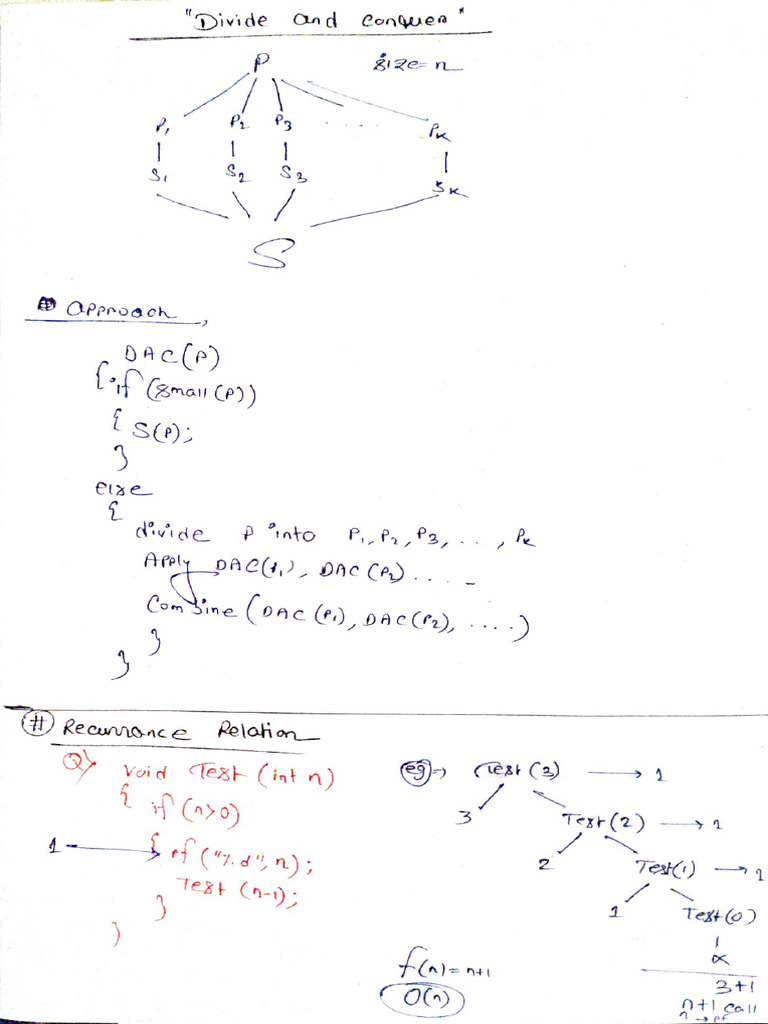 "Divide and Conquer"
P size = n
P1 P2 P3 ..... Pk
S1 S2 S3 Sk
S
Approach,
DAC(P)
{ if (small(P))
{ S(P);
}
Else
{
divide P into P1, P2, P3, ..., Pk
Apply DAC(P1), DAC(P2) .....
Combine (DAC(P1), DAC(P2), ....)
}
}
# Recurrance Relation
Q) void Test (int n)
{ if (n>0)
1 → { pf("%d", n);
Test (n-1);
}
}
eg → Test(3) → 1
3 Test(2) → 1
2 Test(1) → 1
1 Test(0)
x
3+1
n+1 call
n → pf
f(n) = n+1
O(n)